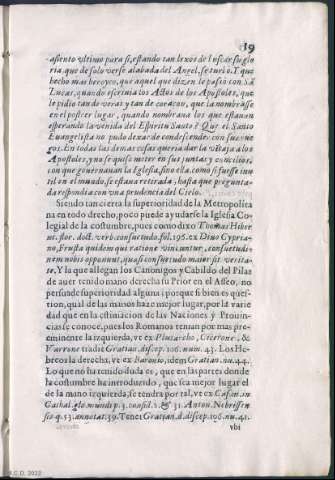 19
assiento vltimo para si, estando tan lexos de buscar su glo
ria, que de solo verse alabada del Angel, se turbò. Y que
hecho mas heroyco, que aquel que dizen le passò con S.
Lucas, quando escriuia los Actos de los Apostoles, que
le pidio tan de veras y tan de coraçon, que la nombrasse
en el postrer lugar, quando nombraua los que estauan
esperando la venida del Espiritu Santo? Que el Santo
Euangelista no pudo dexar de condescender con sus rue
gos. En todas las demas cosas queria dar la vẽtaja a los
Apostoles, y no se quiso meter en sus juntas y concilios,
con que gouernauan la Iglesia, sino ella, como si fuesse inu
til en el mundo, se estaua retirada, hasta que pregunta-
da respondia con vna prudencia del Cielo.
Siendo tan cierta la superioridad de la Metropolita
na en todo derecho, poco puede ayudarse la Iglesia Co-
legial de la costumbre, pues como dixo Thomas Hiber
nic. flor. doct. verb. consuetudo, fol. 196. ex Diuo Cypria-
no, Frustra quidam qui ratione vincuntur, consuetudi-
nem nobis opponunt, quasi consuetudo maior sit verita-
te. Y la que allegan los Canonigos y Cabildo del Pilar
de auer tenido mano derecha su Prior en el Asseo, no
persuade superioridad alguna; porque si bien es quest-
tion, qual de las manos haze mejor lugar, por la varie
dad que en la estimacion de las Naciones y Prouin-
cias se conoce, pues los Romanos tenian por mas pre-
eminente la izquierda, vt ex Plutarcho, Cicerone, &
Varrone tradit Gratian. discep. 106. num. 43. Los He-
breos la derecha, vt ex Baronio, idem Gratian. nu. 44.
Lo que no ha tenido duda es, que en las partes donde
la costumbre ha introducido, que sea mejor lugar el
de la mano izquierda, se tendra por tal, vt ex Casan. in
Cathal. glo. mundi p. 3. consid. 2. & 31. Anton. Nebrissen
sis q. 13. annotat. 39. Tenet Gratian. d. discep. 106. nu. 41.
vbi
B.C.D. 2012